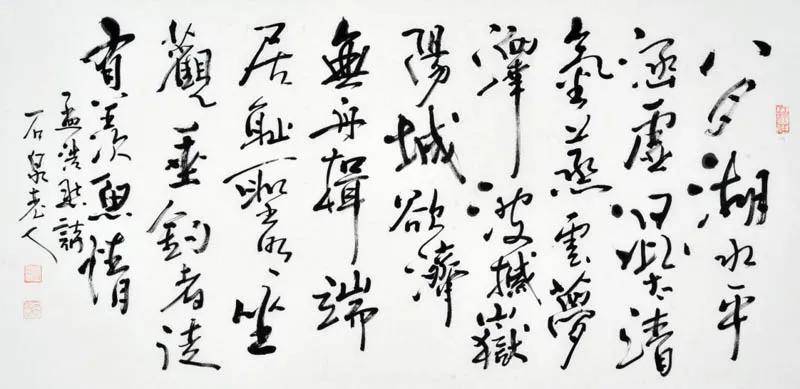 八月湖水平
涵虛混太清
氣蒸雲夢
澤波撼嶽
陽城欲濟
無舟楫端
居恥聖明坐
觀垂釣者徒
有羨魚情
孟浩然詩
石泉老人